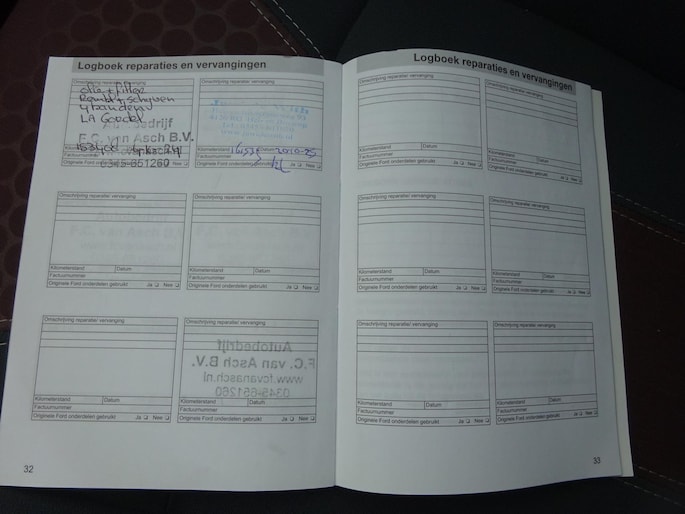 Logboek reparaties en vervangingen
Omschrijving reparatie/ vervanging
olie + filter
Remblok + schijven
4 banden
LA Goedel
Autobedrijf
F.C. van Asch B.V.
Kilometerstand Datum
Factuurnummer
0345-651260
Originele Ford onderdelen gebruikt Ja Nee
Omschrijving reparatie/ vervanging
Kilometerstand Datum
Factuurnummer
Originele Ford onderdelen gebruikt Ja Nee
Omschrijving reparatie/ vervanging
Kilometerstand Datum
Factuurnummer
Originele Ford onderdelen gebruikt Ja Nee
Omschrijving reparatie/ vervanging
Kilometerstand Datum
Factuurnummer
Originele Ford onderdelen gebruikt Ja Nee
Omschrijving reparatie/ vervanging
Kilometerstand Datum
Factuurnummer
Originele Ford onderdelen gebruikt Ja Nee
Omschrijving reparatie/ vervanging
Autobedrijf
F.C. van Asch B.V.
www.fcvanasch.nl
0345-651260
Kilometerstand Datum
Factuurnummer
Originele Ford onderdelen gebruikt Ja Nee
32
Logboek reparaties en vervangingen
Omschrijving reparatie/ vervanging
Kilometerstand Datum
Factuurnummer
Originele Ford onderdelen gebruikt Ja Nee
Omschrijving reparatie/ vervanging
Kilometerstand Datum
Factuurnummer
Originele Ford onderdelen gebruikt Ja Nee
Omschrijving reparatie/ vervanging
Kilometerstand Datum
Factuurnummer
Originele Ford onderdelen gebruikt Ja Nee
Omschrijving reparatie/ vervanging
Kilometerstand Datum
Factuurnummer
Originele Ford onderdelen gebruikt Ja Nee
Omschrijving reparatie/ vervanging
Kilometerstand Datum
Factuurnummer
Originele Ford onderdelen gebruikt Ja Nee
Omschrijving reparatie/ vervanging
Kilometerstand Datum
Factuurnummer
Originele Ford onderdelen gebruikt Ja Nee
33